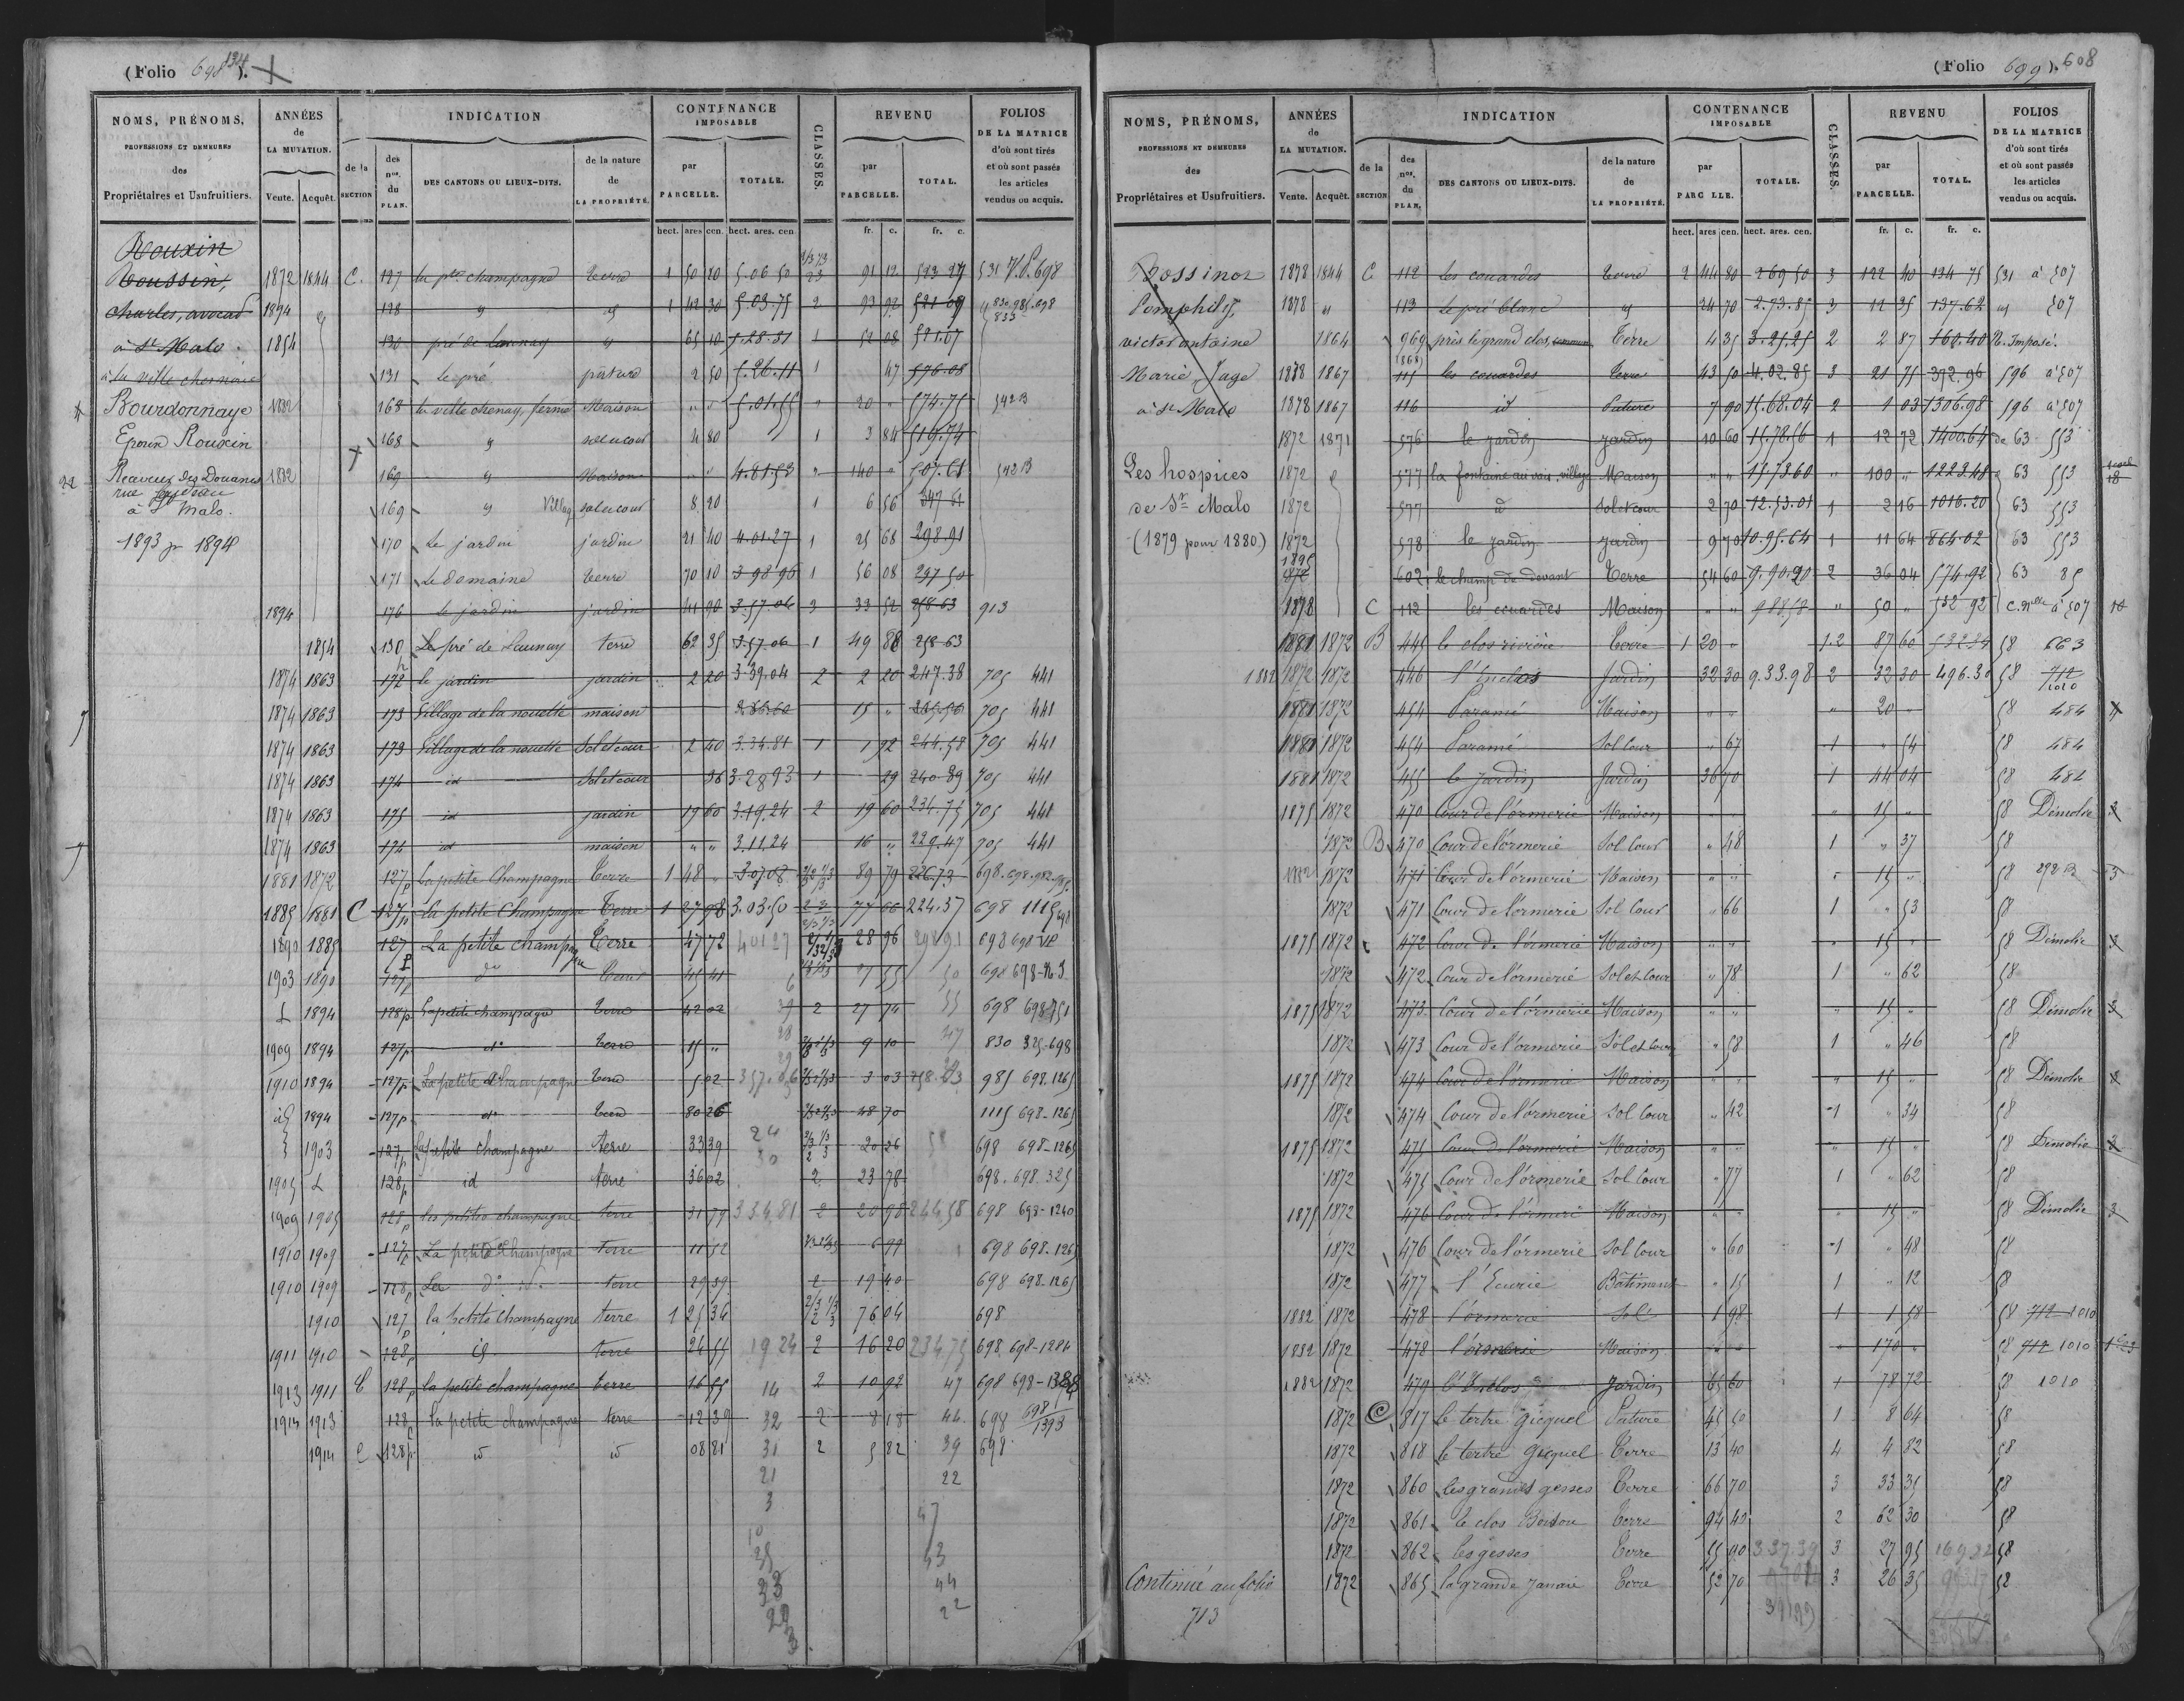 (Folio 698 134).
NOMS, PRÉNOMS, PROFESSIONS ET DEMEURES des Propriétaires et Usufruitiers.
ANNÉES de LA MUTATION. Vente. Acquêt.
INDICATION de la SECTION des nos. du PLAN. DES CANTONS OU LIEUX-DITS. de la nature de LA PROPRIÉTÉ.
CONTENANCE IMPOSABLE par PARCELLE. TOTALE.
CLASSES.
REVENU par PARCELLE. TOTAL.
FOLIOS DE LA MATRICE d'où sont tirés et où sont passés les articles vendus ou acquis.
hect. ares cen. hect. ares. cen. fr. c. fr. c.
Rouxin
Roussin,
charles, avocat
à St Malo.
à la ville chesnaie
Bourdonnaye
Epoux Rouxin
Receveur des Douanes
rue
à St Malo.
1893 pr 1894
1872 1844 C. 127 la pte champagne terre 1 50 20 5.06 50 91 12 523 27 531 V.P. 698
1894 128 " " 1 42 30 5.03.75 2 93 92 521 09
1854 130 pré de Launay " 65 10 5.28.81 1 52 08 581.07
131 Le pré pâture 2 50 5.26.11 1 47 576.08
1882 168 la ville chenay, ferme Maison " " 5.01.55 " 20 " 574.75 542 B
168 " sol et cour 4 80 1 3 84 519.74
1882 169 " Maison " " 4.81.53 " 140 " 507.61 542 B
169 " Village sol et cour 8 20 1 6 56 347 61
170 Le jardin jardin 21 40 4.01.27 1 25 68 298.91
171 Le domaine terre 70 10 3 98 96 1 56 08 297 50
1894 176 le jardin jardin 41 90 3.57.06 2 33 52 258 63 913
1854 130 Le pré de Launay terre 62 35 3.57.06 1 49 88 258 63
1874 1863 172 le jardin jardin 2 20 3.39.04 2 2 20 247.38 705 441
1874 1863 173 Village de la nouette maison 15 " 705 441
1874 1863 173 Village de la nouette Sol et cour 2 40 3.34.81 1 1 92 244.58 705 441
1874 1863 174 id Sol et cour 36 3.28 93 1 29 240.89 705 441
1874 1863 175 id jardin 19 60 3.19.24 2 19 60 234.75 705 441
1874 1863 174 id maison " " 3.11.24 16 " 229.47 705 441
1881 1872 127p La petite Champagne Terre 1 48 " 3.07.08 89 79 226.73 698.698.982.985.
1885 1881 C 127p La petite Champagne Terre 1 27 98 3.03.50 77 66 224.37 698 1115 698
1890 1885 127p La petite champagne Terre 47 72 401 27 28 96 298 91 698 698 VP
1903 1890 127p do Terre 45 41 27 55 50 698 698-763
1894 128p La petite champagne Terre 42 02 39 2 27 74 55 698 698 751
1909 1894 127p do Terre 15 " 28 9 10 47 830 325-698
1910 1894 127p La petite Champagne Terre 5 02 357.06 3 03 258.63 985 698.1265
id 1894 127p do Terre 80 26 48 70 1115 698-1265
1903 127p La petite champagne terre 33 39 24 20 26 58 698 698-1265
1905 128p id terre 36 02 2 23 78 698.698.325
1909 1905 128p les petites champagne terre 31 79 334 81 2 20 98 244 58 698 698-1240
1910 1909 127p La petite Champagne terre 11 52 6 99 698 698-1265
1910 1909 128p La do terre 29 39 2 19 40 698 698-1265
1910 127p la petite Champagne terre 1 25 36 76 04 698
1911 1910 128p id terre 24 55 19 24 2 16 20 234 75 698 698-1284
1913 1911 C 128p la petite champagne terre 16 55 14 2 10 92 47 698 698-1388
1914 1913 128p la petite champagne terre 12 39 32 2 8 18 44 698 698/1393
1914 C 128p id id 08 81 31 2 5 82 39 698
21 22
3 47
10
25 43
23 44
29 22
3
(Folio 699). 608
NOMS, PRÉNOMS, PROFESSIONS ET DEMEURES des Propriétaires et Usufruitiers.
ANNÉES de LA MUTATION. Vente. Acquêt.
INDICATION de la SECTION des nos. du PLAN. DES CANTONS OU LIEUX-DITS. de la nature de LA PROPRIÉTÉ.
CONTENANCE IMPOSABLE par PARC LLE. TOTALE.
CLASSES.
REVENU par PARCELLE. TOTAL.
FOLIOS DE LA MATRICE d'où sont tirés et où sont passés les articles vendus ou acquis.
hect. ares cen. hect. ares. cen. fr. c. fr. c.
Rossinoz
Pamphily,
victor antoine
Marie, Juge
à St Malo
Les hospices
de St Malo
(1879 pour 1880)
1878 1844 C 112 les couardes terre 2 44 80 2 69 50 3 122 40 134 75 531 à 507
1878 " 113 Le pré blanc " 24 70 2.73.85 3 12 35 137.62 " 507
1864 969 près le grand clos, commun Terre 4 35 3.25.25 2 2 87 160.40 N. Imposé.
1878 1867 115 les couardes terre 43 50 4.02.85 3 21 75 392.96 596 à 507
1878 1867 116 id Pature 7 90 15.68.04 2 1 03 1306.98 596 à 507
1872 1871 576 le jardin jardin 10 60 15.78.56 1 12 72 1400.64 de 63 553
1872 577 la fontaine au vais, village Maison " " 15.73.60 " 100 " 1223.48 63 553
1872 577 d Sol et cour 2 70 12.53.01 1 2 16 1016.20 63 553
1872 578 le jardin Jardin 9 70 10.95.64 1 11 64 864.02 63 553
1895 1872 602 le champ de devant Terre 54 60 9.90.20 2 36 04 574.92 63 85
1878 C 112 les couardes Maison " " " 50 " 552 92 C. nlle à 507 10
1881 1872 B 445 le clos rivière Terre 1 20 " 1.2 87 60 58 663
1882 1872 1872 446 l'Enclos Jardin 32 30 9.33.98 2 32 30 496.30 58 712/1010
1881 1872 454 Paramé Maison " " " 20 " 58 484
1881 1872 454 Paramé Sol Cour " 67 1 " 54 58 484
1881 1872 455 le jardin Jardin 36 70 1 44 04 58 484
1875 1872 470 Cour de l'ormerie Maison " " " 15 " 58 Démolie
1872 B 470 Cour de l'ormerie Sol Cour " 48 1 " 37 58
1882 1872 471 Cour de l'ormerie Maison " " " 15 " 58 292 B 3
1872 471 Cour de l'ormerie Sol Cour " 66 1 " 53 58
1875 1872 472 Cour de l'ormerie Maison " " " 15 " 58 Démolie 3
1872 472 Cour de l'ormerie Sol et Cour " 78 1 " 62 58
1875 1872 473 Cour de l'ormerie Maison " " " 15 " 58 Démolie 3
1872 473 Cour de l'ormerie Sol et Cour " 58 1 " 46 58
1875 1872 474 Cour de l'ormerie Maison " " " 15 " 58 Démolie
1872 474 Cour de l'ormerie Sol Cour " 42 1 " 34 58
1875 1872 475 Cour de l'ormerie Maison " " " 15 " 58 Démolie 2
1872 475 Cour de l'ormerie Sol Cour " 77 1 " 62 58
1875 1872 476 Cour de l'ormerie Maison " " " 15 " 58 Démolie 3
1872 476 Cour de l'ormerie Sol Cour " 60 1 " 48 58
1872 477 l'Ecurie Bâtiment " 15 1 " 12 58
1882 1872 478 l'ormerie Sol 1 98 1 1 58 58 712 1010
1882 1872 478 l'ormerie Maison " " " 170 " 58 712 1010
1882 1872 479 l'Enclos Jardin 65 60 1 78 72 58 1010
1872 C 817 le tertre gicquel Pature 45 50 1 8 64 58
1872 818 le tertre gicquel Terre 13 40 4 4 82 58
1872 860 les grandes gesses Terre 66 70 3 33 35 58
1872 861 le clos Boidou Terre 94 40 2 62 30 58
1872 862 les gesses Terre 55 90 3 37.39 3 27 95 58
Continué au folio 1872 865 la grande janaie Terre 52 70 3 26 35 58
713